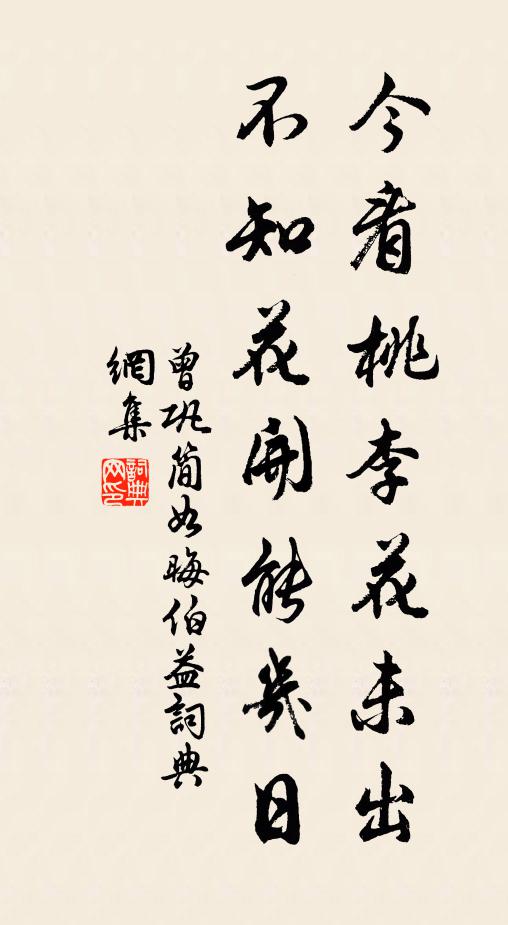 今看桃李花未出
不知花開能幾日
曾巩简如晦伯益詞典
網集
詞典
网印